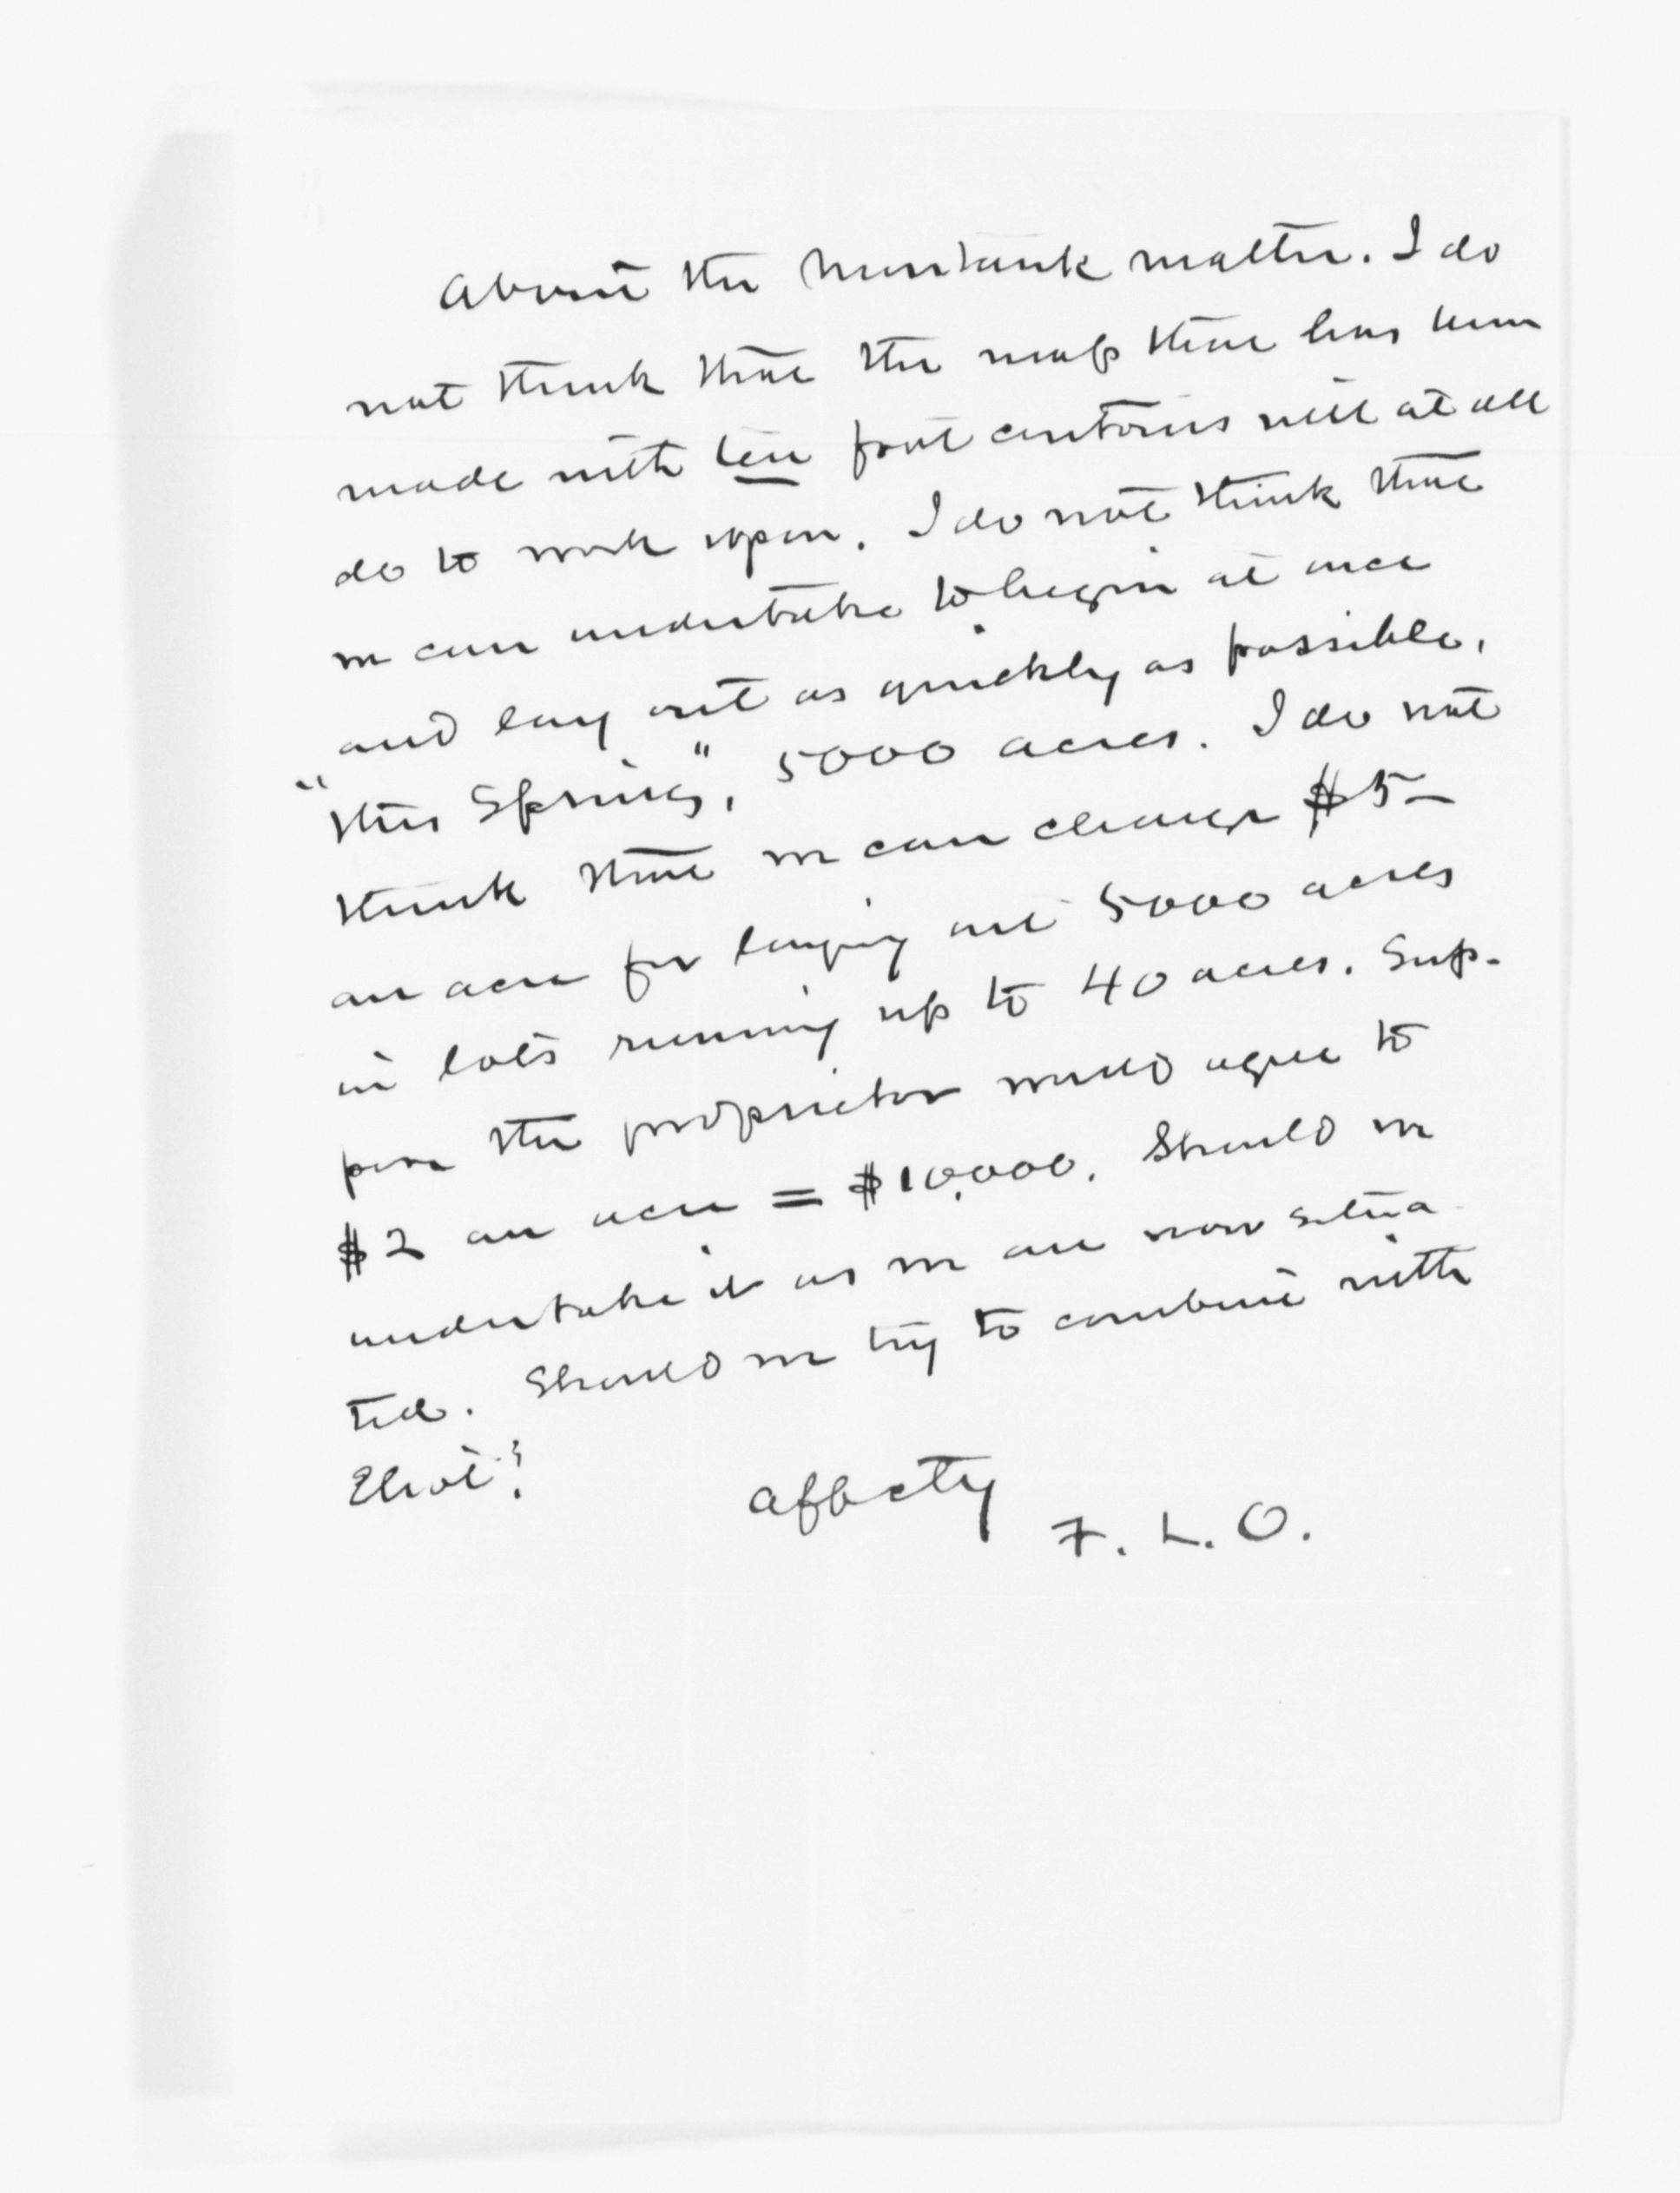 About the Montauk matter. I do
not think that the map that has been
made with ten foot contours will at all
do to work upon. I do not think that
we can undertake to begin at once
and lay out as quickly as possible,
"this Spring", 5000 acres. I do not
think that we can charge $5–
an acre for laying out 5000 acres
in lots running up to 40 acres. Sup-
pose the proprietor would agree to
$2 an acre = $10,000. Should we
undertake it as we are now situa-
ted. Should we try to combine with
Eliot?
Affcty
F. L. O.